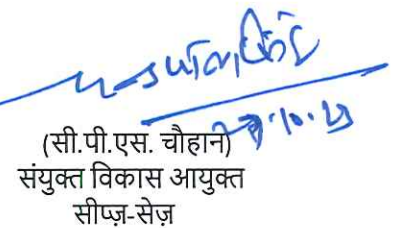 (सी.पी.एस. चौहान)
संयुक्त विकास आयुक्त
सीप्ज़-सेज़